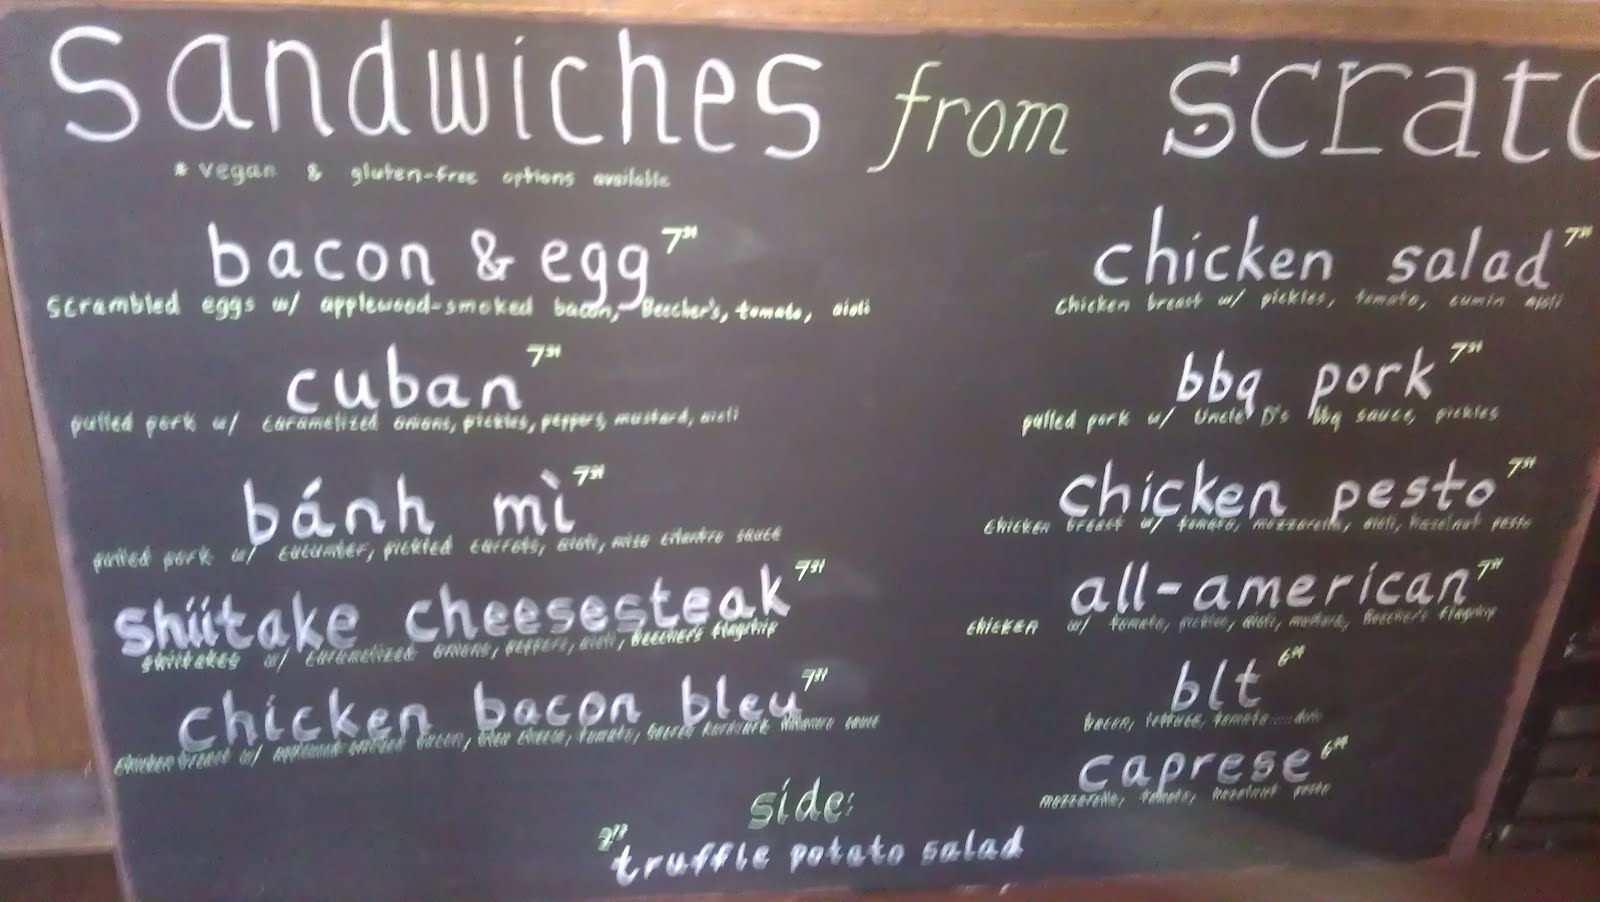 Sandwiches from scratc
* vegan & gluten-free options available
bacon & egg
scrambled eggs w/ applewood-smoked bacon, Beecher's, tomato, aioli
cuban
pulled pork w/ caramelized onions, pickles, peppers, mustard, aioli
bánh mì
pulled pork w/ cucumber, pickled carrots, aioli, miso cilantro sauce
shiitake cheesesteak
shiitakes w/ caramelized onions, peppers, aioli, Beecher's flagship
chicken bacon bleu
chicken breast w/ applewood smoked bacon, bleu cheese, tomato, sauce
chicken salad
chicken breast w/ pickles, tomato, cumin aioli
bbq pork
pulled pork w/ Uncle D's bbq sauce, pickles
chicken pesto
chicken breast w/ tomato, mozzarella, aioli, hazelnut pesto
all-american
chicken w/ tomato, pickles, aioli, mustard, Beecher's flagship
blt
bacon, lettuce, tomato
caprese
mozzarella, tomato, hazelnut pesto
side:
truffle potato salad